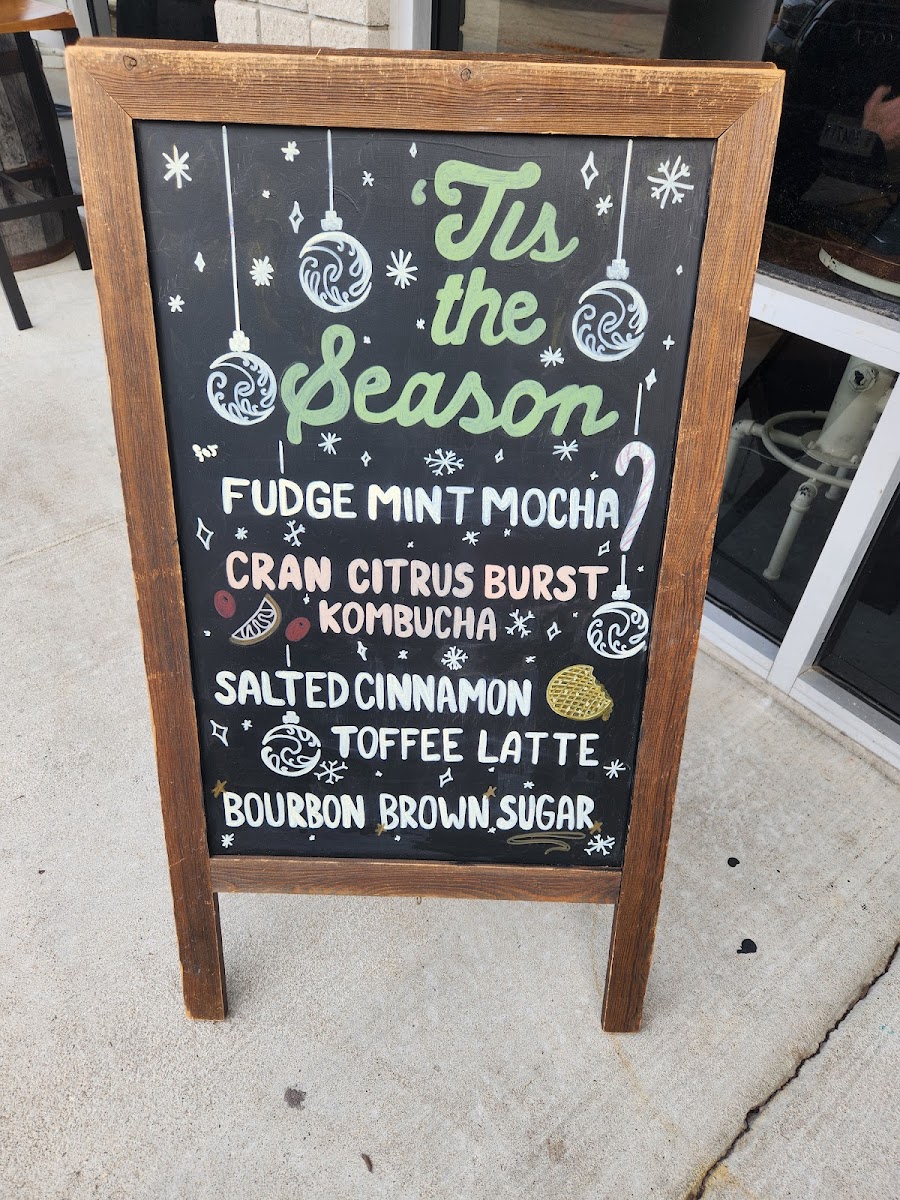 'Tis
the
Season
FUDGE MINT MOCHA
CRAN CITRUS BURST
KOMBUCHA
SALTED CINNAMON
TOFFEE LATTE
BOURBON BROWN SUGAR